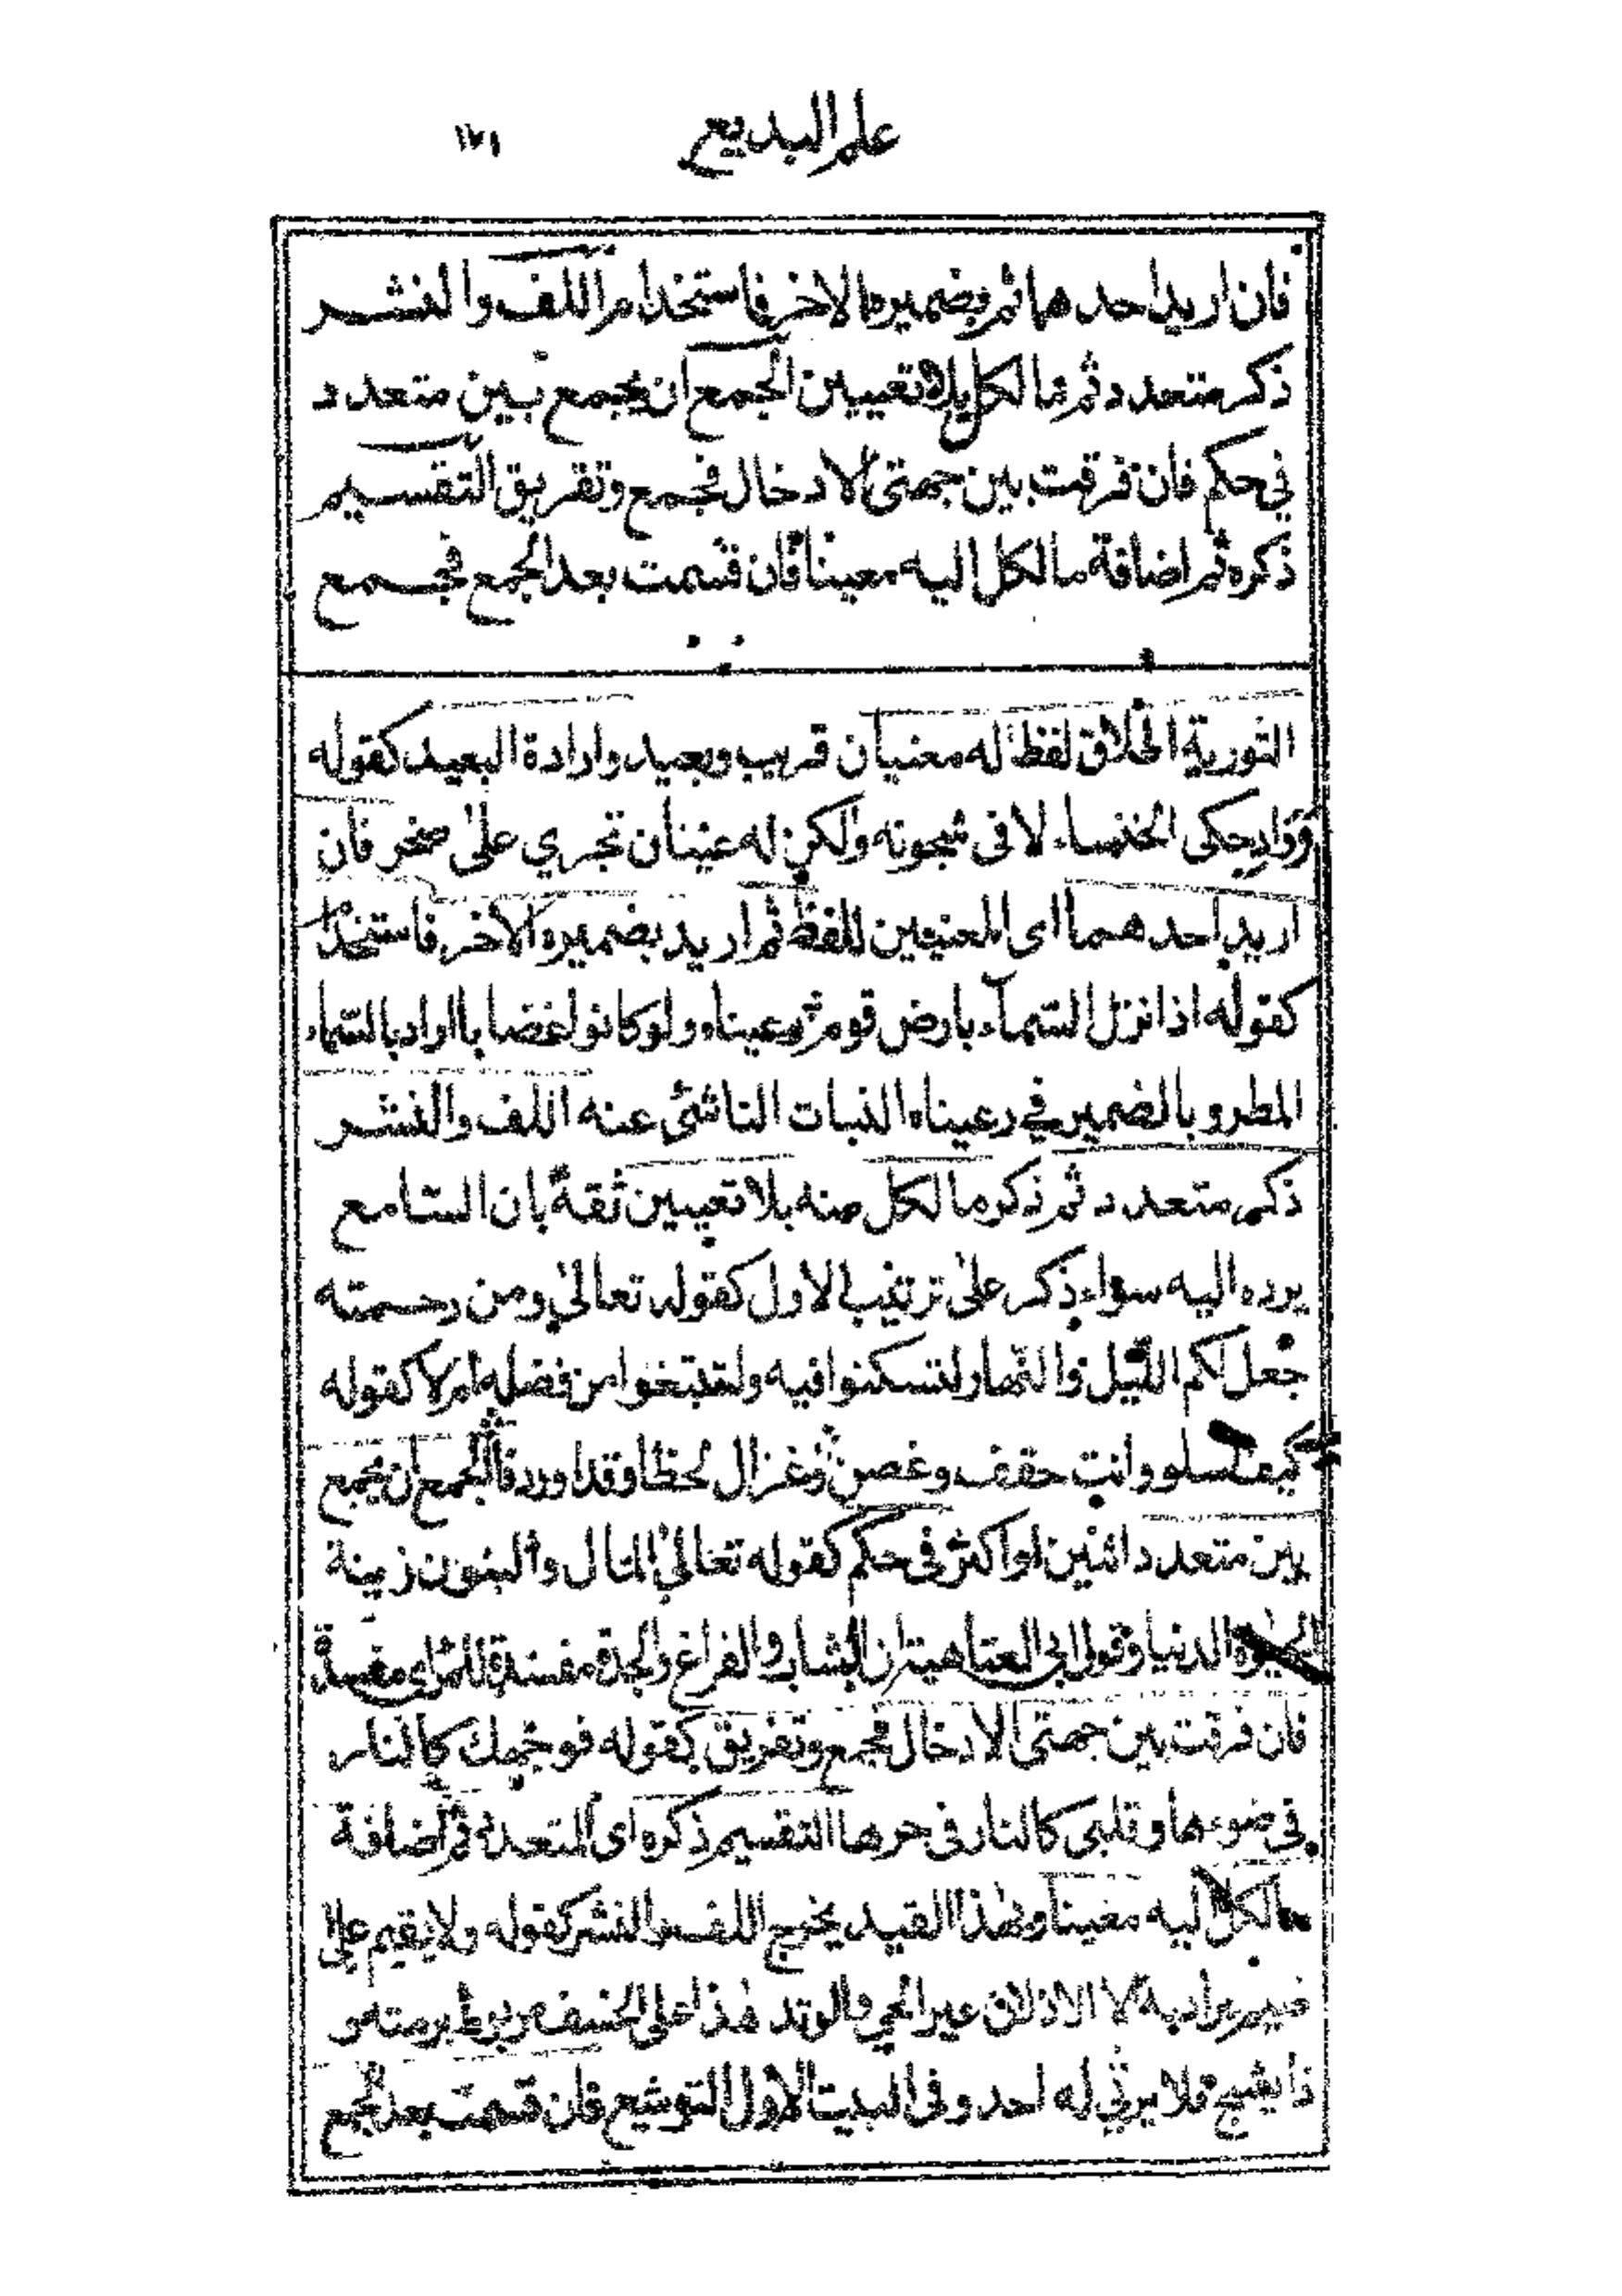 علم البديع ١٧١
فان اريد احدهما ثم بضميره الاخر فاستخدام اللف والنشر
ذكر متعدد ثم ما لكل بلا تعيين الجمع ان يجمع بين متعدد
في حكم فان فرقت بين جهتى الادخال فجمع وتفريق التقسيم
ذكره ثم اضافة ما لكل اليه معينا فان قسمت بعد الجمع فجمع
التورية اطلاق لفظ له معنيان قريب وبعيد وارادة البعيد كقوله
وواد حكى الخنساء لا فى شجونه ولكن له عينان تجري على صخر فان
اريد احدهما اى المعنيين للفظ ثم اريد بضميره الاخر فاستخدام
كقوله اذا نزل السمآء بارض قوم رعيناه ولو كانوا غضابا اراد بالسماء
المطر وبالضمير في رعيناه النبات الناشئ عنه اللف والنشر
ذكر متعدد ثم ذكر ما لكل منه بلا تعيين ثقة بان السامع
يرده اليه سواء ذكر على ترتيب الاول كقوله تعالى ومن رحمته
جعل لكم الليل والنهار لتسكنوا فيه ولتبتغوا من فضله ام لا كقوله
كيف اسلو وانت حقف وغصن وغزال لحظا وقدا وردفا الجمع ان يجمع
بين متعدد اثنين او اكثر فى حكم كقوله تعالى المال والبنون زينة
الحيوة الدنيا وقول ابى العتاهية ان الشباب والفراغ والجدة مفسدة للمرء اى مفسدة
فان فرقت بين جهتى الادخال فجمع وتفريق كقوله فوجهك كالنار
فى ضوءها وقلبى كالنار فى حرها التقسيم ذكره اى المتعدد ثم اضافة
ما لكل اليه معينا وبهذا القيد يخرج اللف والنشر كقوله ولا يقيم على
ضيم يراد به الا الاذلان عير الحي والوتد هذا على الخسف مربوط برمته و
ذا يشج فلا يرثي له احد وفى البيت الاول التوشيع فان قسمت بعد الجمع